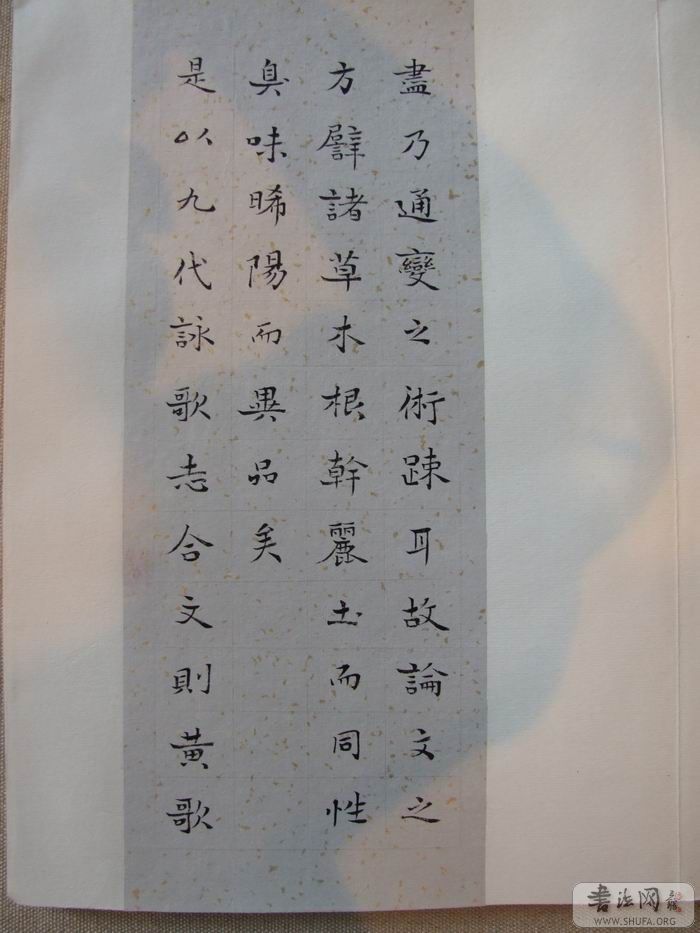 盡乃通變之術踈耳故論文之
方譬諸草木根幹麗土而同性
臭味晞陽而異品矣
是以九代詠歌志合文則黃歌
書法网
WWW.SHUFA.ORG